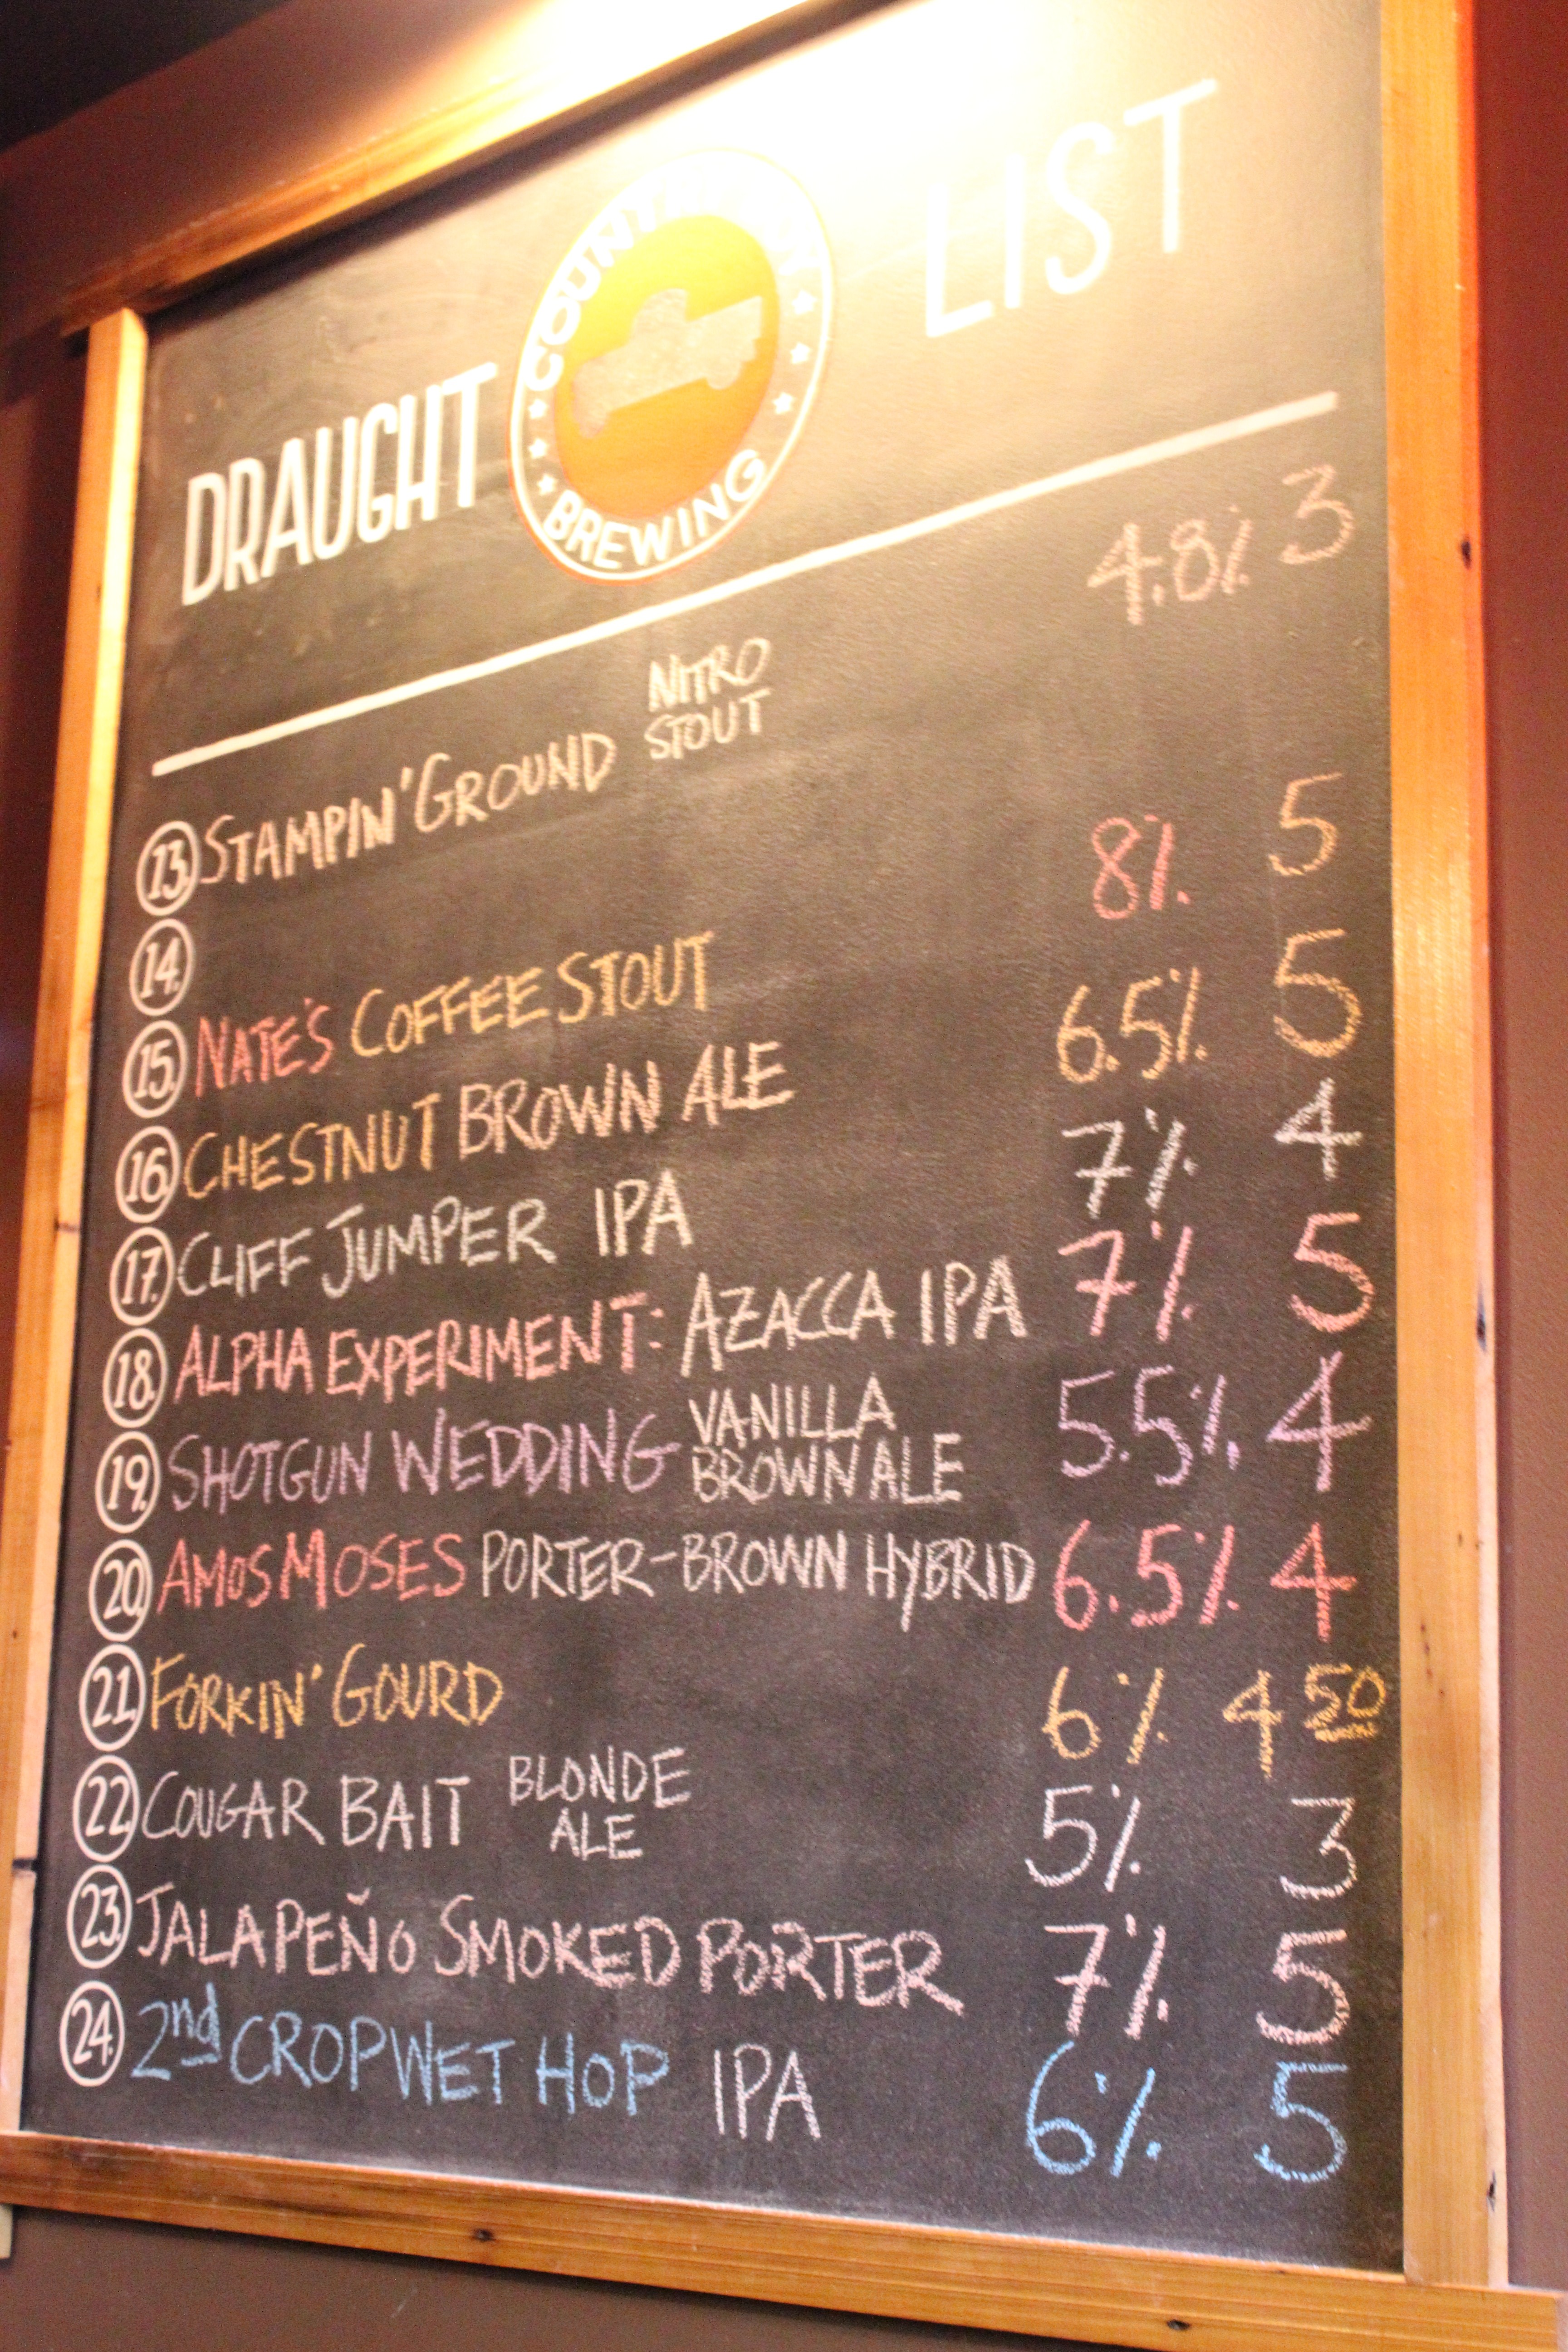 DRAUGHT LIST
BREWING
13. STAMPIN' GROUND NITRO STOUT 4.8% 3
14.
15. NATE'S COFFEE STOUT 8% 5
16. CHESTNUT BROWN ALE 6.5% 5
17. CLIFF JUMPER IPA 7% 4
18. ALPHA EXPERIMENT: AZACCA IPA 7% 5
19. SHOTGUN WEDDING VANILLA BROWN ALE 5.5% 4
20. AMOS MOSES PORTER-BROWN HYBRID 6.5% 4
21. FORKIN' GOURD 6% 4 50
22. COUGAR BAIT BLONDE ALE 5% 3
23. JALAPEÑO SMOKED PORTER 7% 5
24. 2nd CROP WET HOP IPA 6% 5